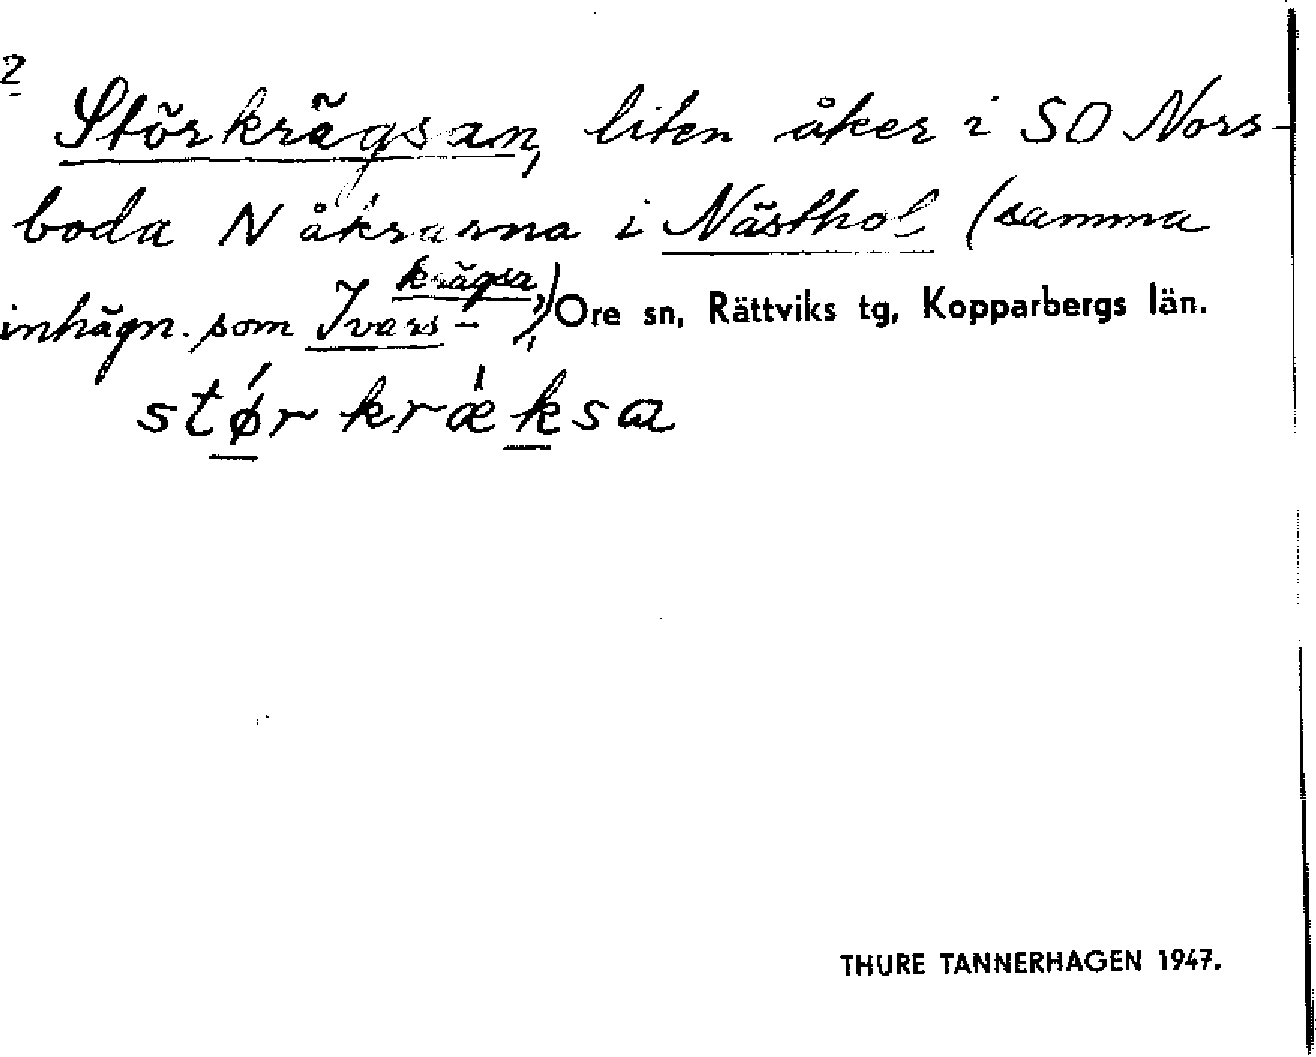 2
Störkrägsan, liten åker i SO Nors-
boda N åkrarna i Nästhol (samma
krägsa
inhägn. som Ivars- ), Ore sn, Rättviks tg, Kopparbergs län.
stǿr krǽksa
THURE TANNERHAGEN 1947.